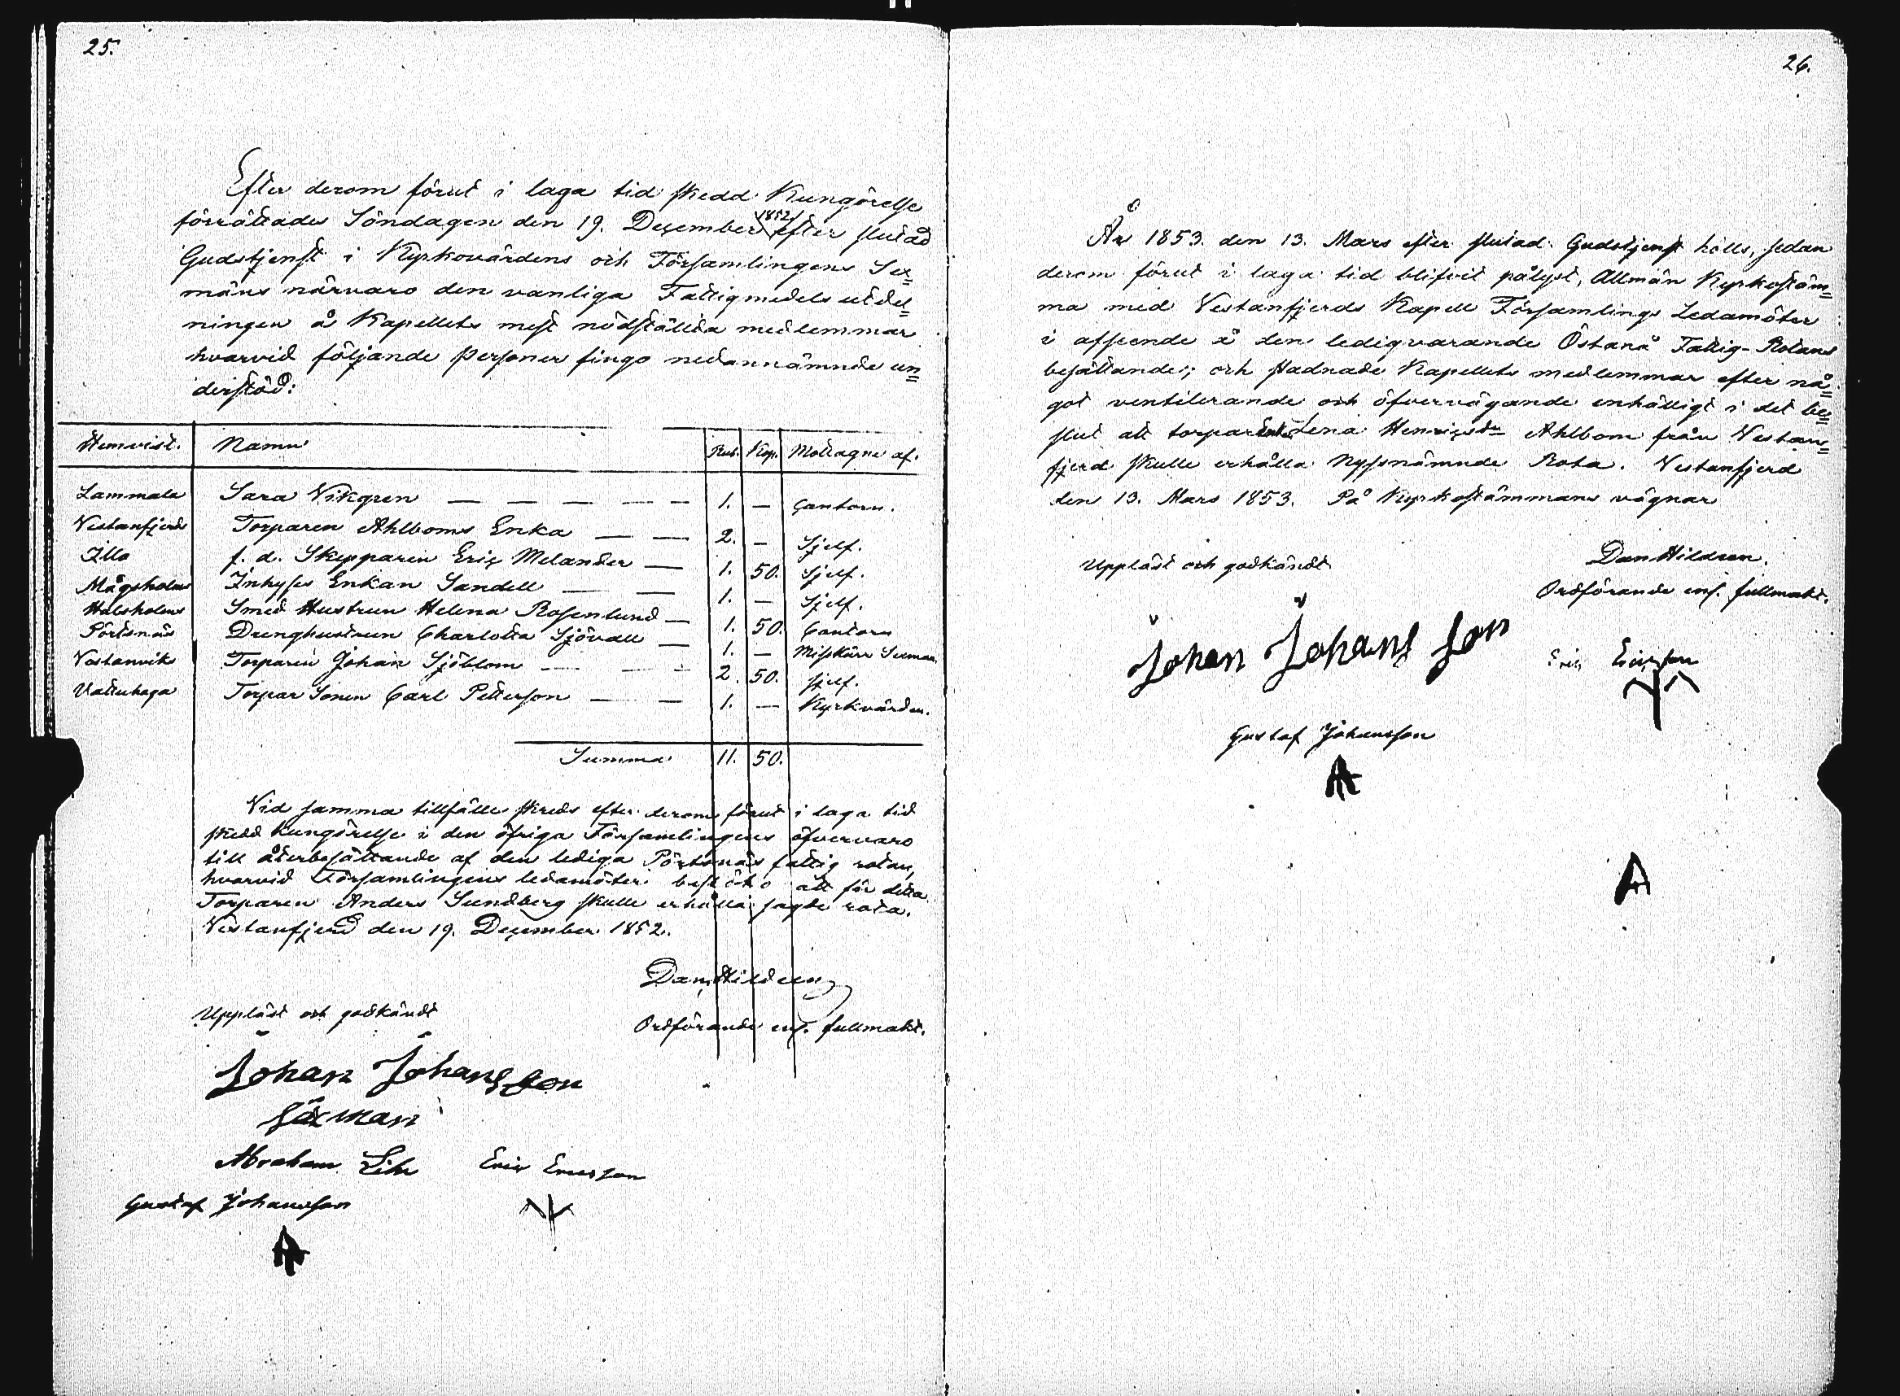 25.
Efter derom förut i laga tid skedd Kungörelse
förrättades Söndagen den 19. December 1852 efter slutad
Gudstjenst i Kyrkovärdens och Församlingens Sex=
mäns närvaro den vanliga Fattigmedels utdel=
ningen å Kapellets mest nödställda medlemmar
hvarvid följande personer fingo nedannämnde un=
derstöd:
Hemvist. Namn Rub. Kop. Mottagne af.
Lammala Sara Vikgren — — — — — 1. — Cantorn.
Vestanfjerd Torparen Ahlboms Enka — — 2. — Sjelf.
Illo f. d. Skepparen Eric Melander — 1. 50. Sjelf.
Mågsholm Inhyses Enkan Sandell — — 1. — Sjelf.
Halsholm Smed Hustrun Helena Rosenlund — 1. 50. Cantorn
Pörtsnäs Drenghustrun Charlotta Sjövall — 1. — Misskärr Sexman.
Vestanvik Torparen Johan Sjöblom — — 2. 50. sjelf.
Vattuhaga Torpar Sonen Carl Petterson — — 1. — Kyrkvärden.
Summa 11. 50.
Vid samma tillfälle skreds efter derom förut i laga tid
skedd kungörelse i den öfriga Församlingens öfvervaro
till återbesättande af den lediga Pörtsnäs fattig rotan,
hvarvid Församlingens ledamöter beslöto att för detta
Torparen Anders Sundberg skulle erhålla sagde rota.
Vestanfjerd den 19. December 1852.
Dan Hildeen
Ordförande enl. fullmakt.
Uppläst och godkändt
Johan Johansson
säxman
Abraham Lih Eric Ericsson
Gustaf Johansson
26.
År 1853. den 13. Mars efter slutad Gudstjenst hölls, sedan
derom förut i laga tid blifvit pålyst, Allmän Kyrkostäm=
ma med Vestanfjerds Kapell Församlings Ledamöter
i afseende å den ledigvarande Östanå Fattig-Rotans
besättande; och stadnade Kapellets medlemmar efter nå=
got ventilerande och öfvervägande enhälligt i det be=
slut att torpar Lena Henricsdr Ahlbom från Vestan=
fjerd skulle erhålla nyssnämnde Rota. Vestanfjerd
den 13. Mars 1853. På Kyrkostämmans vägnar
Dan Hildeen.
Ordförande enl. fullmakt.
Uppläst och godkändt
Johan Johansson
Eric Ericsson
Gustaf Johansson